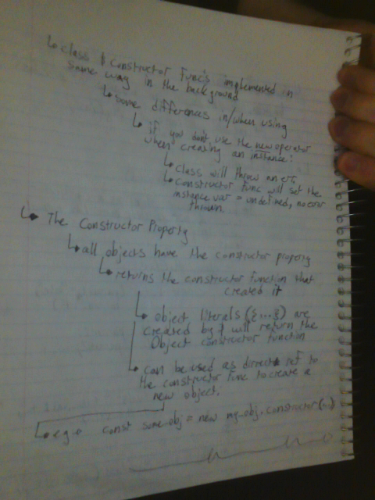 ↳ class & constructor func's implemented in
same way in the background
↳ some differences in/when using
↳ if you don't use the new operator
when creating an instance:
↳ class will throw an err
↳ constructor func will set the
instance var = undefined, no error
thrown.
↳ The Constructor Property
↳ all objects have the constructor property
↳ returns the constructor function that
created it
↳ object literals ({...}) are
created by & will return the
Object constructor function
↳ can be used as direct ref to
the constructor func to create a
new object.
↳ e.g. const some_obj = new my_obj.constructor(..)